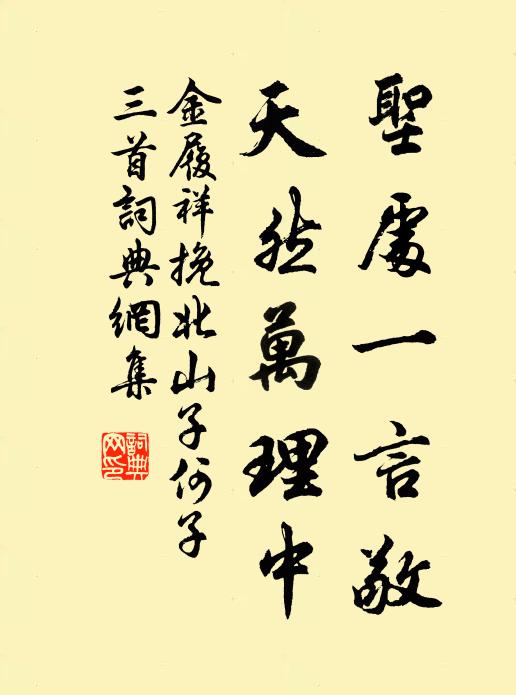 聖處一言敬
天然萬理中
金履祥挽北山子何子
三首詞典網集
詞典
网印